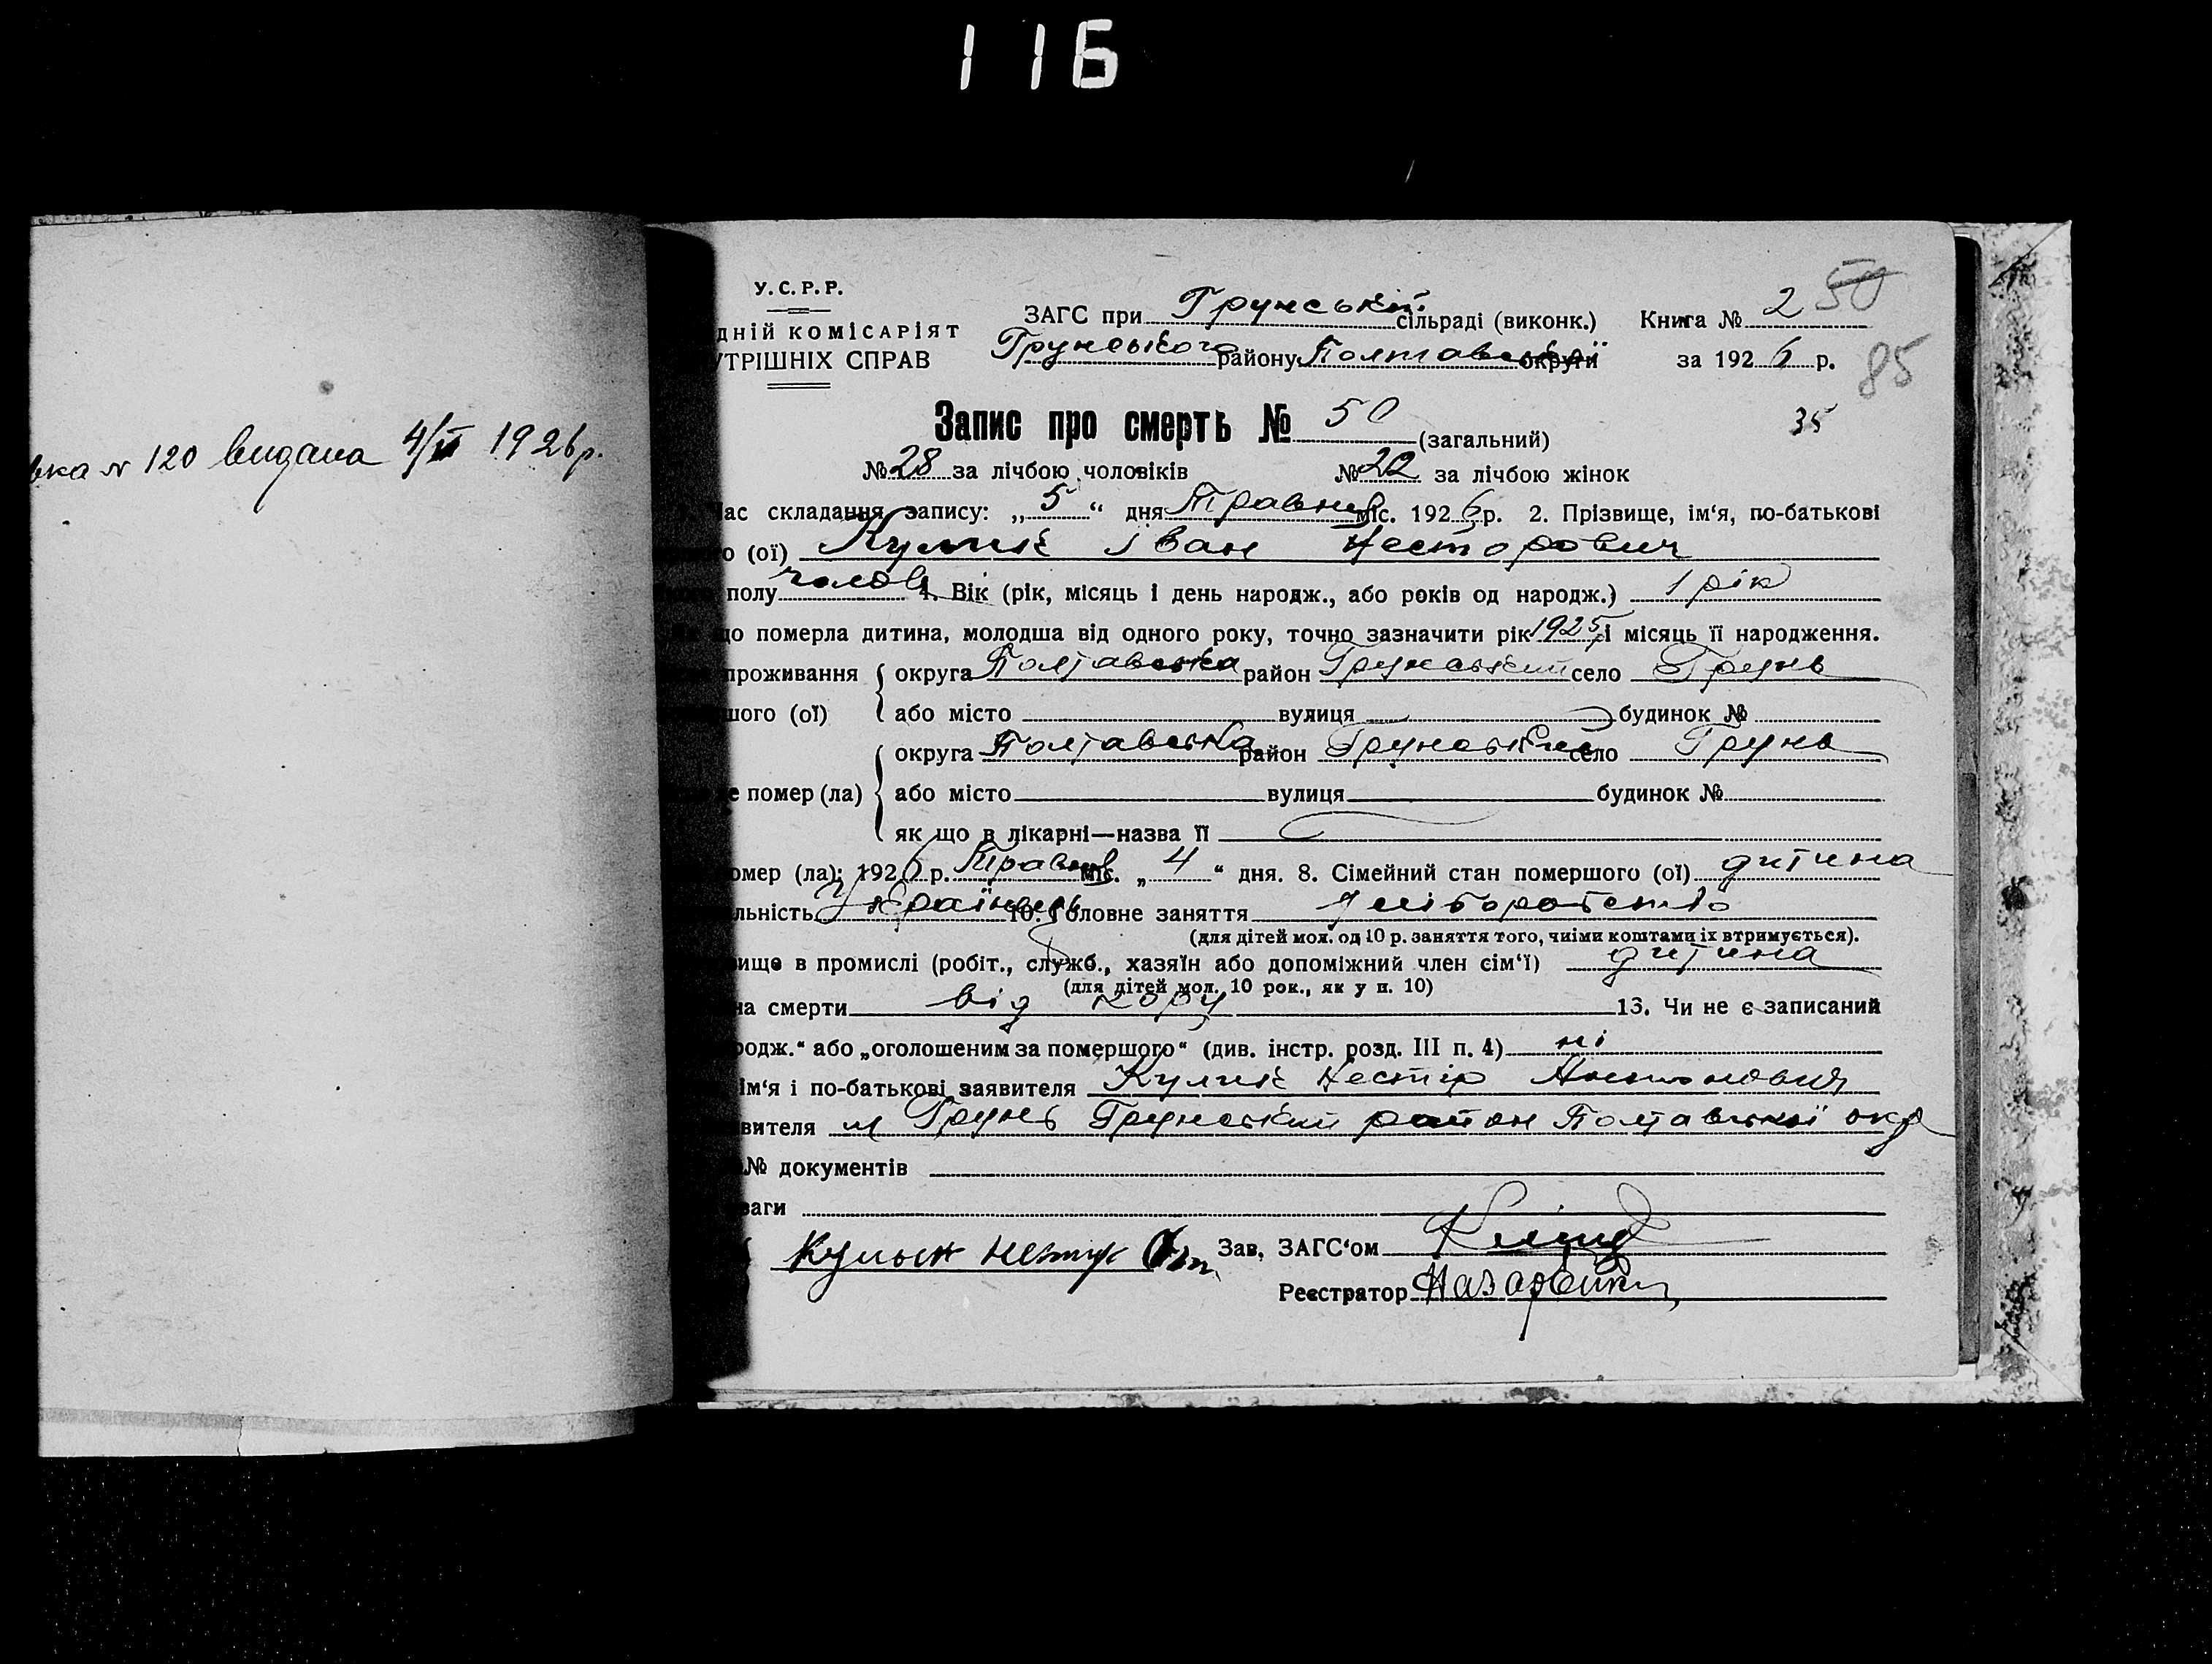 116
У. С. Р. Р.
ДНІЙ КОМІСАРІЯТ
УТРІШНІХ СПРАВ
ЗАГС при Грунській сільраді (виконк.) Книга № 2 50
Грунського району Полтавської округи за 1926 р. 85
Запис про смерть № 50 (загальний) 35
№ 28 за лічбою чоловіків № 22 за лічбою жінок
вка № 120 видана 1926 р.
Час складання запису: „5“ дня Травня міс. 1926 р. 2. Прізвище, ім‘я, по-батькові
о (ої) Кулик Іван Несторович
полу чолов 4. Вік (рік, місяць і день народж., або років од народж.) 1 рік
що померла дитина, молодша від одного року, точно зазначити рік 1925 і місяць її народження.
проживання округа Полтавська район Грунський село Грунь
шого (ої) або місто вулиця будинок №
округа Полтавська район Грунський село Грунь
е помер (ла) або місто вулиця будинок №
як що в лікарні—назва її
омер (ла): 1926 р. Травня міс. „4“ дня. 8. Сімейний стан помершого (ої) дитина
льність Українець 10. Головне заняття хліборобство
(для дітей мол. од 10 р. заняття того, чиїми коштами їх втримується).
вище в промислі (робіт., служб., хазяїн або допоміжний член сім‘ї) дитина
(для дітей мол. 10 рок., як у п. 10)
на смерти від кору 13. Чи не є записаний
родж.“ або „оголошеним за помершого“ (див. інстр. розд. III п. 4) ні
ім‘я і по-батькові заявителя Кулик Нестір Антонович
вителя м Грунь Грунський район Полтавської окр
№ документів
ваги
Зав. ЗАГС‘ом
Реєстратор